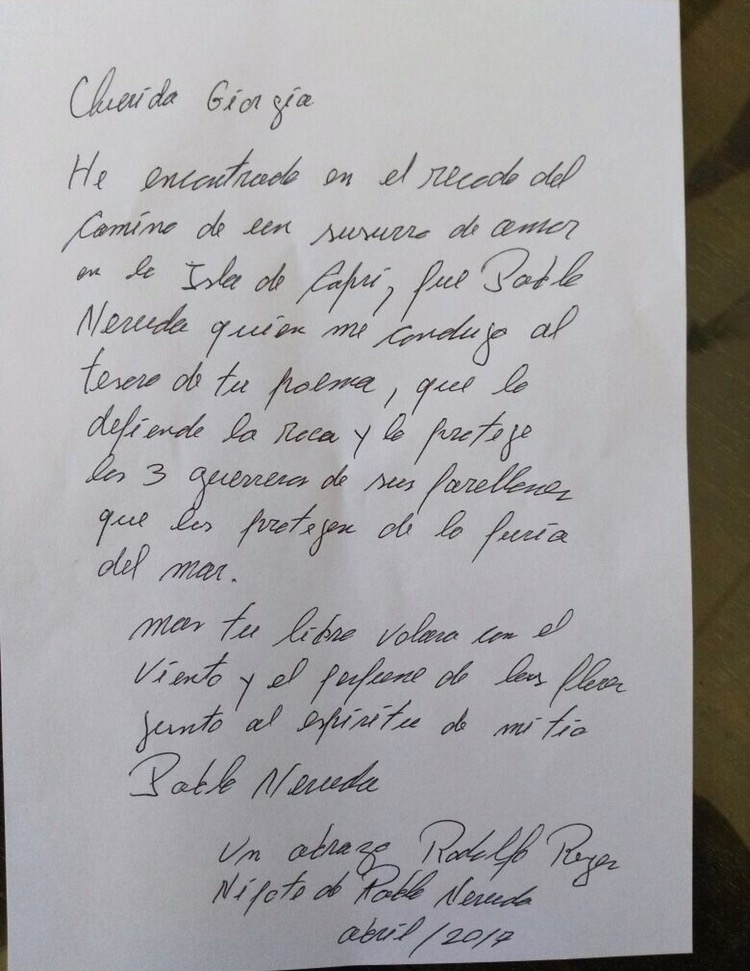 Querida Giorgia
He encontrado en el recodo del
camino de un susurro de amor
en la Isla de Capri, fue Pablo
Neruda quien me condujo al
tesoro de tu poema, que lo
defiende la roca y lo protege
los 3 guerreros de sus farellones
que los protegen de la furia
del mar.
mas tu libro volara con el
viento y el perfume de las flores
junto al espiritu de mi tio
Pablo Neruda
Un abrazo Rodolfo Reyes
Nipote de Pablo Neruda
abril/2017